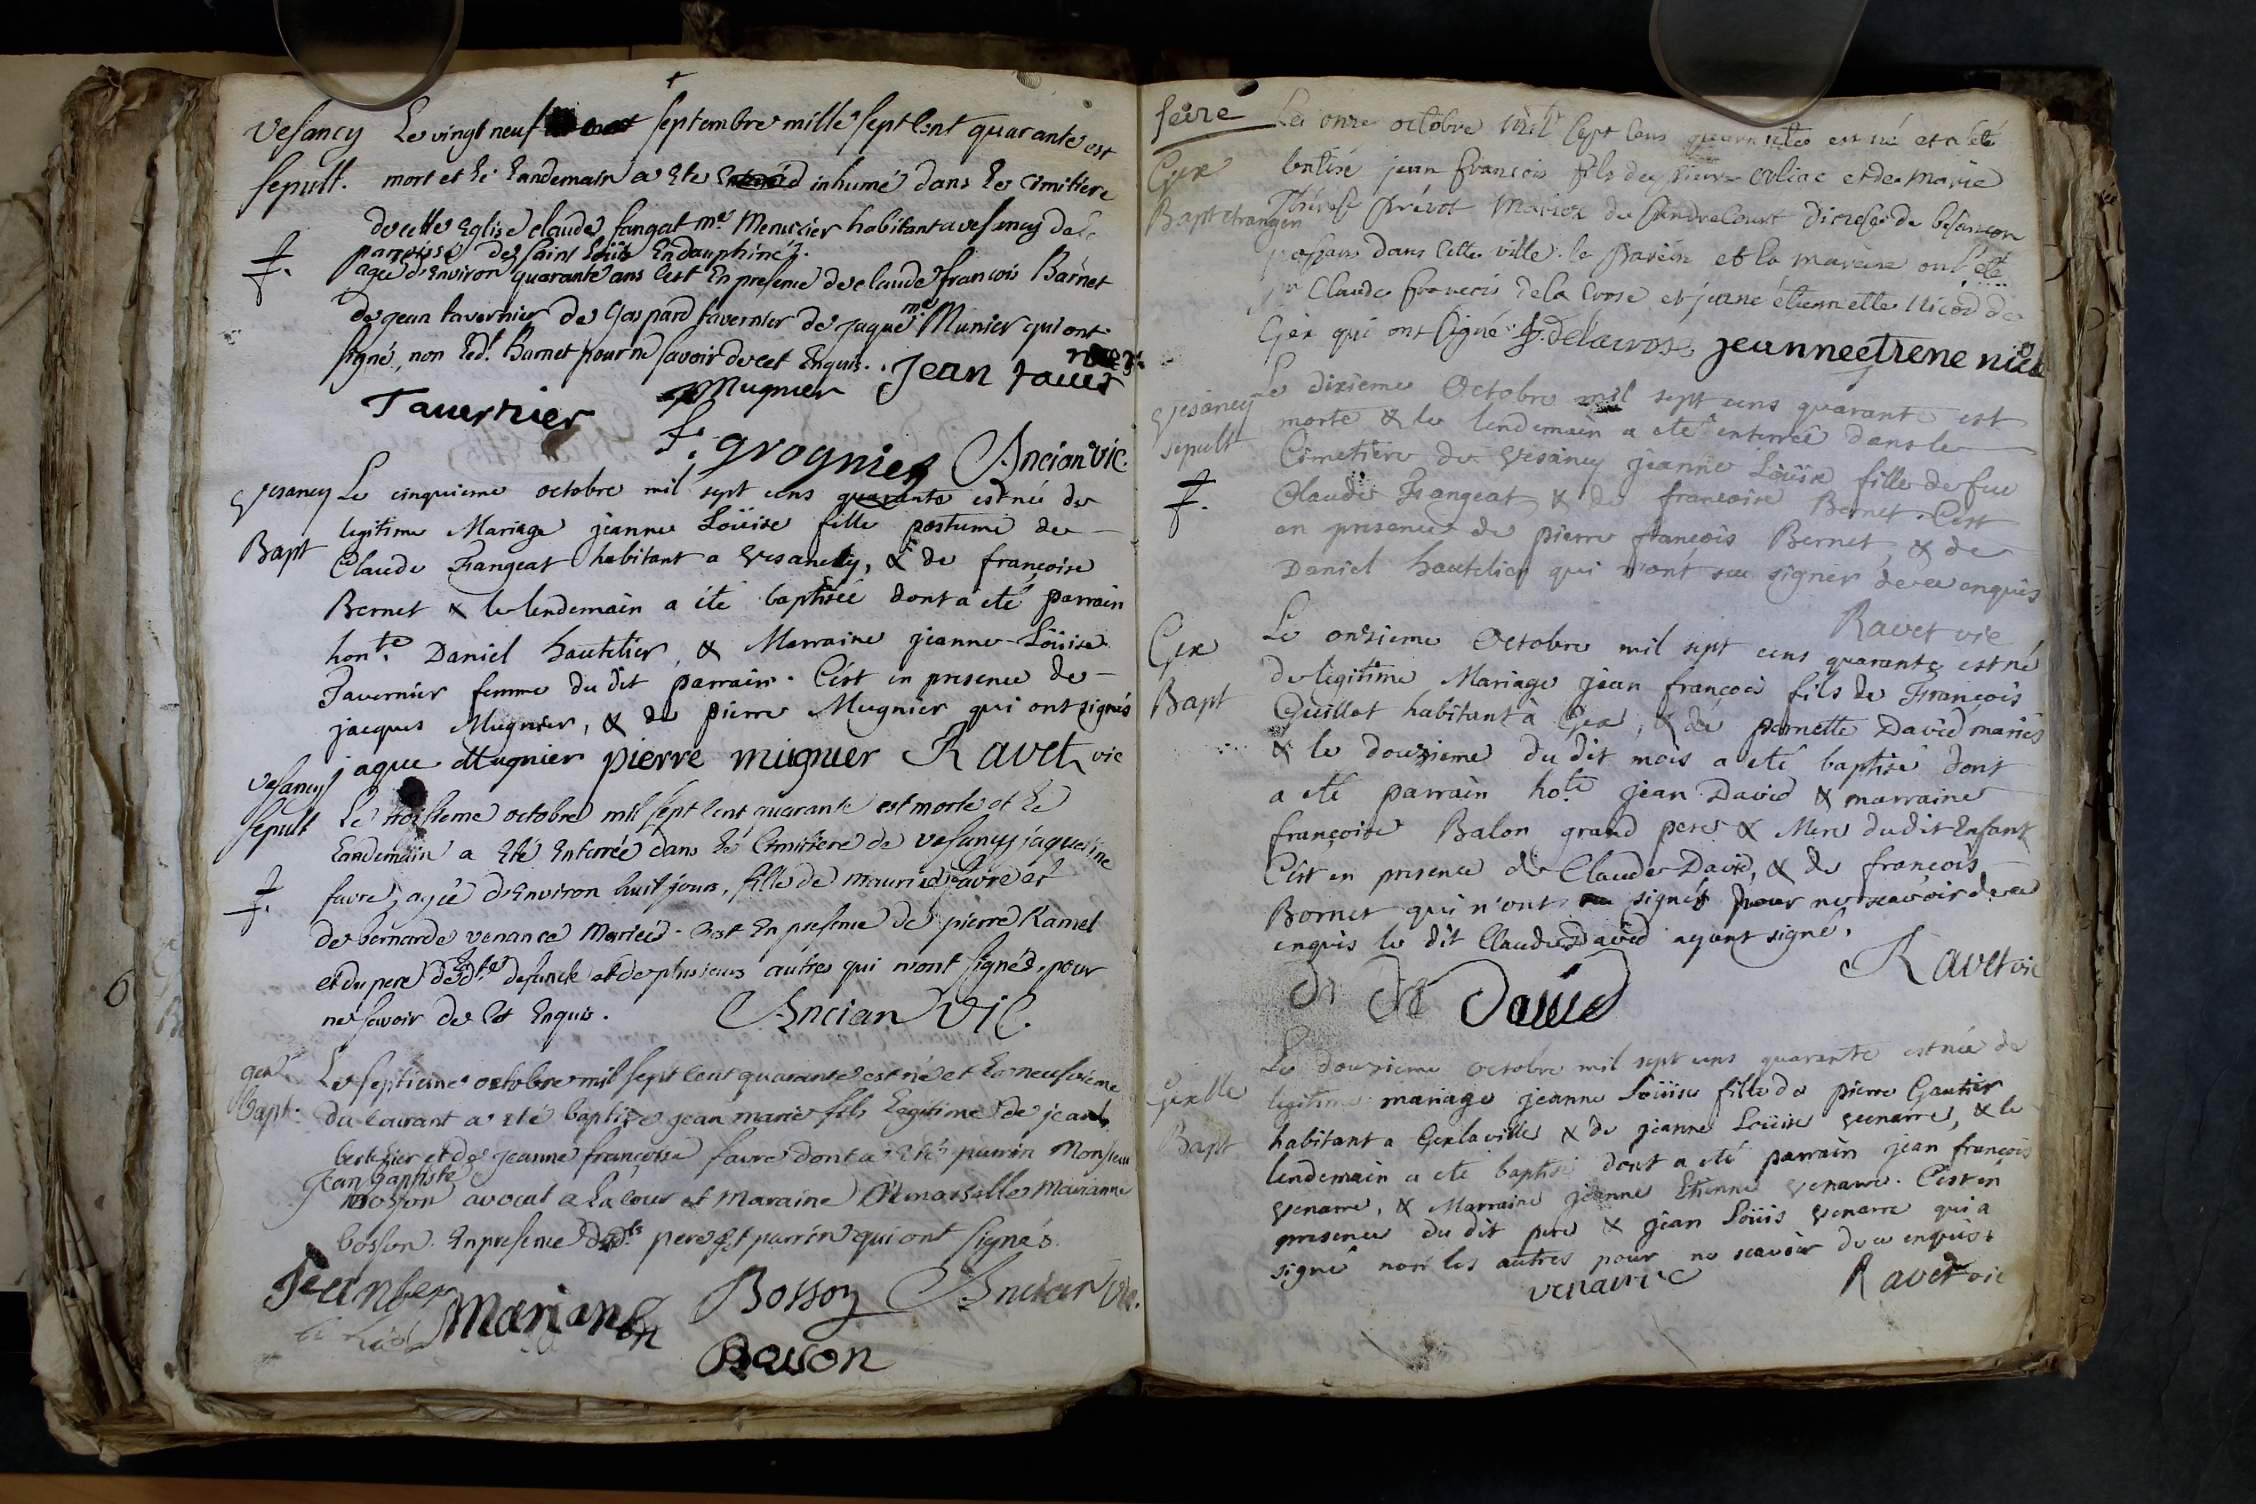 Vesancy Le vingt neuf septembre mille sept Cent quarante est
sepult. mort et le Landemain a ete inhumé dans le Cimitiere
de cette Eglise claude fangat me. Menuisier habitant a vesancy de la
parroisse de saint Loüis En dauphiné
agée d'Environ quarante ans C'est En presence de claude francois Barnet
de jean tavernier de Gaspard tavernier de jaque Munier qui ont
signé, non led.t Barnet pour ne savoir de cet Enquis. Jean taver
Tavernier Mugnier
f. grognier Ancian Vic.
Vesancy Le cinquieme octobre mil sept cens quarante est née de
legitime Mariage jeanne Loüise fille postume de
Bapt Claude Frangeat habitant a Vesancy, & de françoise
Bernet & le lendemain a eté baptisée dont a eté parrain
hon.te Daniel hautelier, & Marraine jeanne-Loüise
Tavernier femme du dit parrain. C'est en presence de
jacques Mugnier, & de pierre Mugnier qui ont signés
jaque Mugnier pierre mugnier Ravet vic
Vesancy
sepult Le troisieme octobre mil sept Cent quarante est morte et le
Landemain a Eté Enterrée dans le Cimitiere de vesancy jaqueline
favre, agée d'Environ huit jours, fille de maurice favre et
de bernarde venance Mariés. C'est En presence de pierre Ramel
et du pere de defuncte et de plusieurs autres qui n'ont signés, pour
ne savoir de Cet Enquis. Ancian Vic.
gex Le septieme octobre mil sept Cent quarante est né et Le neufvieme
Bapt. du Courant a eté baptizé jean marie fils Legitime de jean
berthier et de jeanne françoise favre dont a Eté parrin Monsieur
Jean baptiste
bosson avocat a La Cour et Maraine Demoiselle Marianne
bosson. En presence pere Et parrin qui ont signés.
Jean ber Mariane Bosson Ancian Vic.
Bosson
6
feire Le onze octobre mil sept cens quarante est né et a eté
Gex batisé jean francois fils de pierre et de Marie
Bapt etranger Thérese prévot Mariez de Diocese de besancon
dans Cette ville. le parein et la mareine ont eté
Claude francois dela Crose et jeane etiennette Nicod de
Gex qui ont signé. delacrose jeanneetiene
Vesancy Le dixieme Octobre mil sept cens quarante est
sepult morte & le lendemain a eté enterrée dans le
Cimetiere de Vesancy jeanne Loüise fille de feu
Claude Frangeat & de francoise Bernet. C'est
en presence de pierre françois Bernet, & de
Daniel hautelier qui n'ont sçu signer de ce enquis
Ravet vic
Gex Le onzieme Octobre mil sept cens quarante est né
de legitime Mariage jean françois fils de François
Bapt Quillot habitant à Gex, & de pernette David mariés
& le douzieme du dit mois a eté baptisé dont
a eté parrain ho.te jean David & marraine
françoise Balon grand pere & Mere du dit Enfant
C'est en presence de Claude David, & de francois
Bornet qui n'ont signés pour ne sçavoir de ce
enquis le dit Claude David ayant signé.
Ravet vic
David
Le douzieme octobre mil sept cens quarante est née de
Gexlle legitime mariage jeanne Loüise fille de pierre Gautier
Bapt habitant a Gexlaville & de jeanne Loüise Venarre, & le
lendemain a eté baptisé dont a eté parrain jean françois
Venarre, & Marraine jeanne Etienne Venarre. C'est en
presence du dit pere & jean Loüis Venarre qui a
signé non les autres pour ne scavoir de ce enquis.
venarre Ravet vic